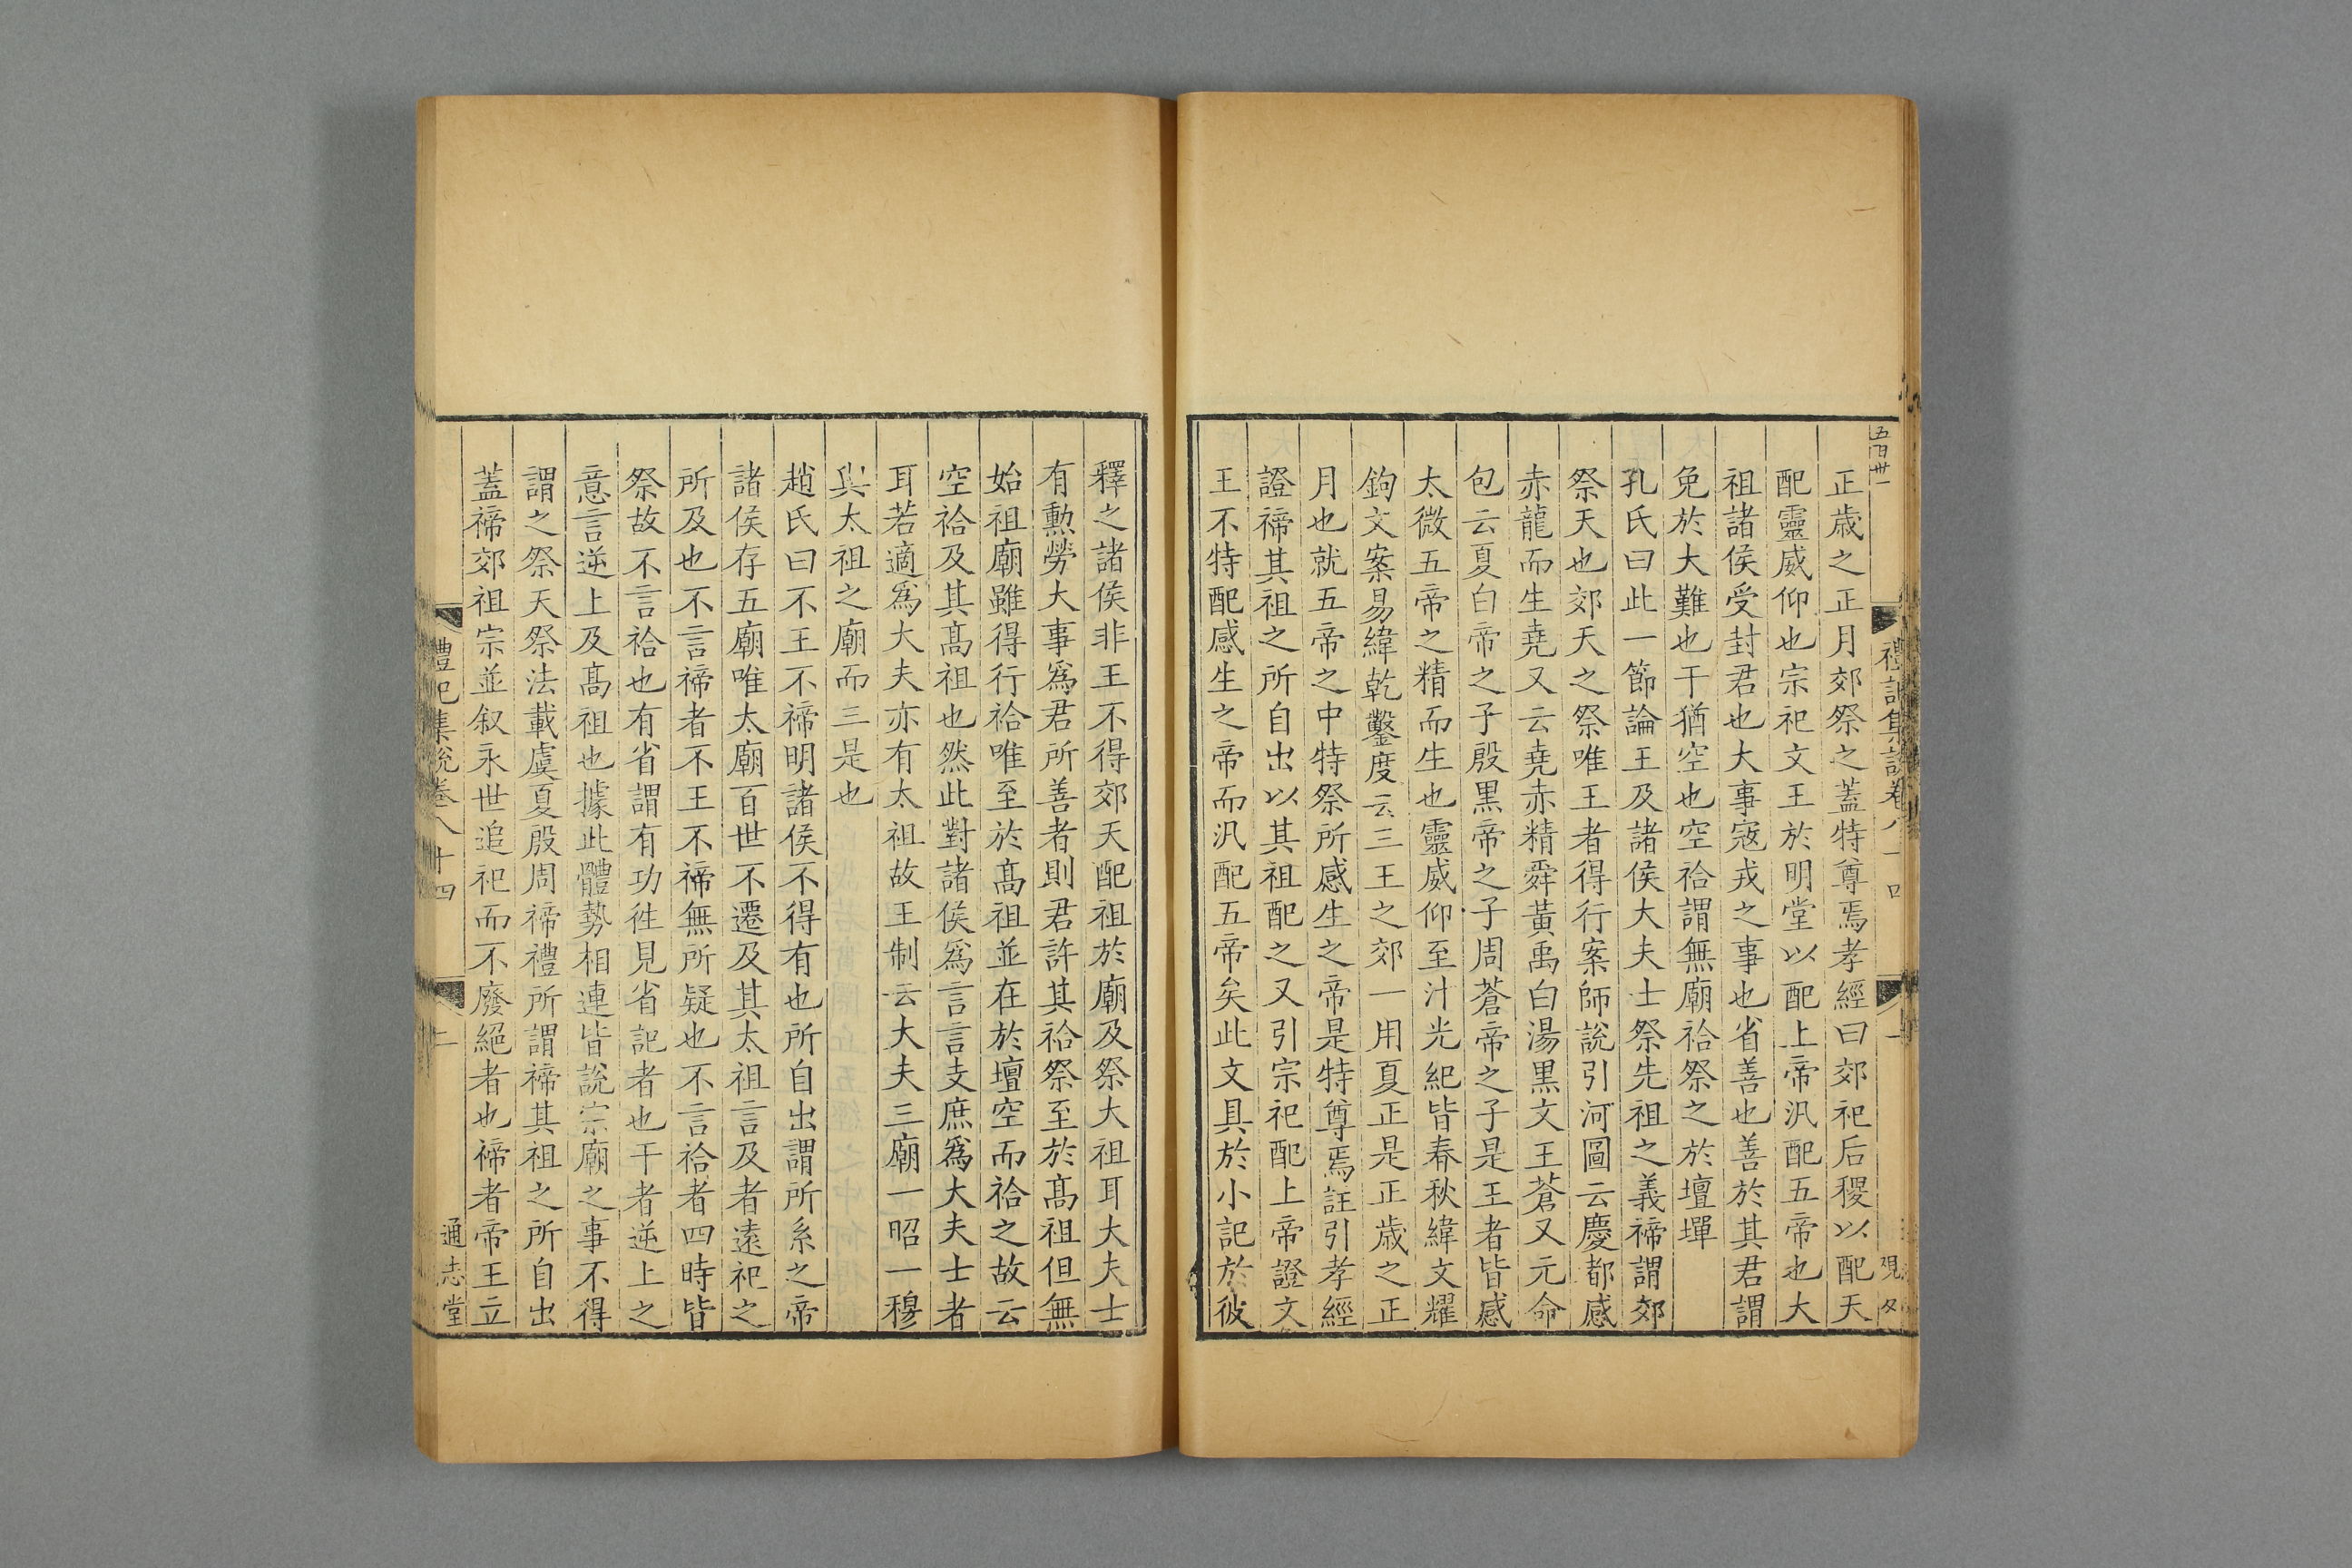 五百卅一
禮記集說卷八十四
正歲之正月郊祭之蓋特尊焉孝經曰郊祀后稷以配天
配靈威仰也宗祀文王於明堂以配上帝汎配五帝也大
祖諸侯受封君也大事寇戎之事也省善也善於其君謂
免於大難也干猶空也空祫謂無廟祫祭之於壇墠
孔氏曰此一節論王及諸侯大夫士祭先祖之義禘謂郊
祭天也郊天之祭唯王者得行案師說引河圖云慶都感
赤龍而生堯又云堯赤精舜黃禹白湯黑文王蒼又元命
包云夏白帝之子殷黑帝之子周蒼帝之子是王者皆感
太微五帝之精而生也靈威仰至汁光紀皆春秋緯文耀
鉤文案易緯乾鑿度云三王之郊一用夏正是正歲之正
月也就五帝之中特祭所感生之帝是特尊焉註引孝經
證禘其祖之所自出以其祖配之又引宗祀配上帝證文
王不特配感生之帝而汎配五帝矣此文具於小記於彼
釋之諸侯非王不得郊天配祖於廟及祭大祖耳大夫士
有勲勞大事爲君所善者則君許其祫祭至於髙祖但無
始祖廟雖得行祫唯至於髙祖並在於壇空而祫之故云
空祫及其髙祖也然此對諸侯爲言言支庶爲大夫士者
耳若適爲大夫亦有太祖故王制云大夫三廟一昭一穆
與太祖之廟而三是也
趙氏曰不王不禘明諸侯不得有也所自出謂所系之帝
諸侯存五廟唯太廟百世不遷及其太祖言及者遠祀之
所及也不言禘者不王不禘無所疑也不言祫者四時皆
祭故不言祫也有省謂有功徃見省記者也干者逆上之
意言逆上及髙祖也據此體勢相連皆說宗廟之事不得
謂之祭天祭法載虞夏殷周禘禮所謂禘其祖之所自出
蓋禘郊祖宗並叙永世追祀而不廢絕者也禘者帝王立
禮記集說卷八十四
二
通志堂